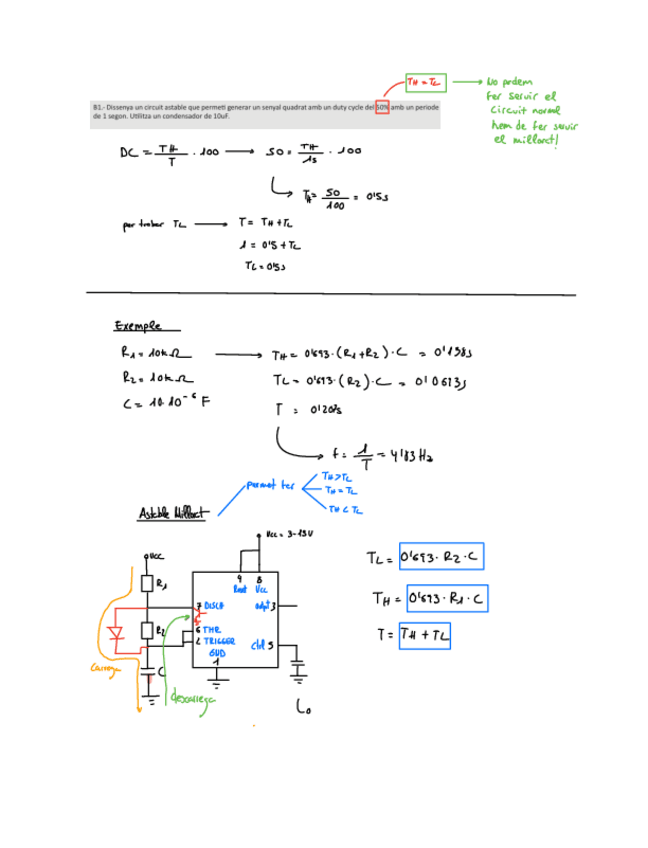 TH = TL → No podem
fer servir el
circuit normal
hem de fer servir
el millorat!
B1.- Dissenya un circuit astable que permeti generar un senyal quadrat amb un duty cycle del 50% amb un periode
de 1 segon. Utilitza un condensador de 10uF.
DC = TH/T · 100 → 50 = TH/1s · 100
TH = 50/100 = 0'5s
per trobar TL → T = TH + TL
1 = 0'5 + TL
TL = 0'5s
Exemple
R1 = 10kΩ → TH = 0'693 · (R1+R2) · C = 0'138s
R2 = 10kΩ TL = 0'693 · (R2) · C = 0'0693s
C = 10·10⁻⁶ F T = 0'207s
f = 1/T = 4'83Hz
permet fer
TH>TL
TH = TL
TH < TL
Astable Millorat
Vcc = 3-15V
Vcc
R1
R2
C
4 8
Reset Vcc
7 DISCH
6 THR
2 TRIGGER
GND
1
3
ctrl 5
carrega
descarrega
TL = 0'693 · R2 · C
TH = 0'693 · R1 · C
T = TH + TL